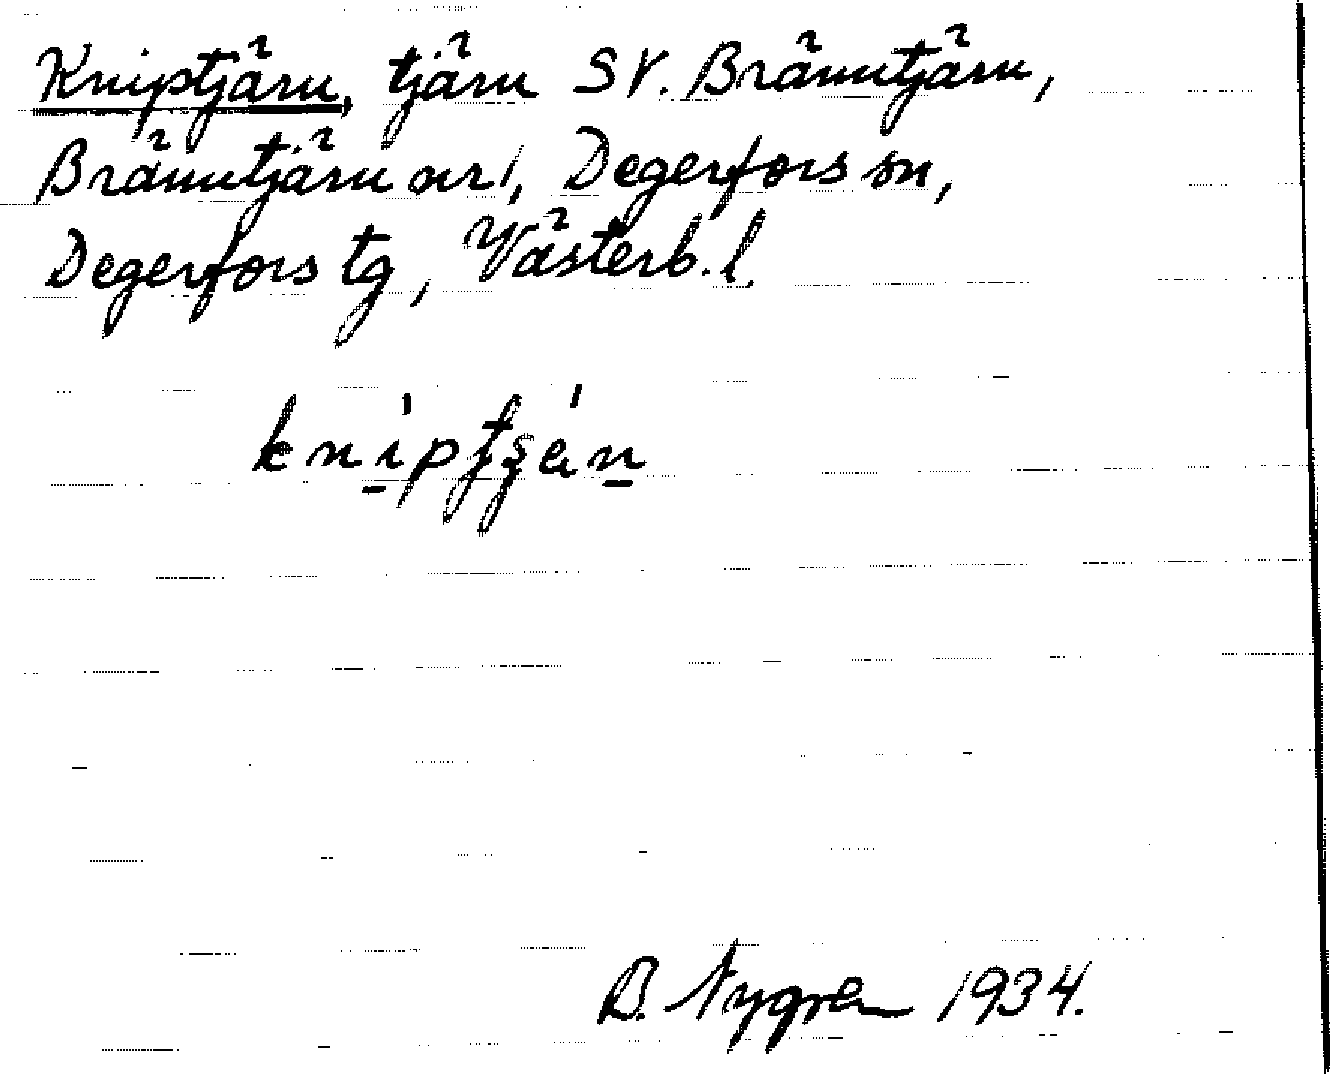 Kniptjärn, tjärn SV. Bränntjärn,
Bränntjärn nr 1, Degerfors sn,
Degerfors tg, Västerb. l.
B. Nygren 1934.